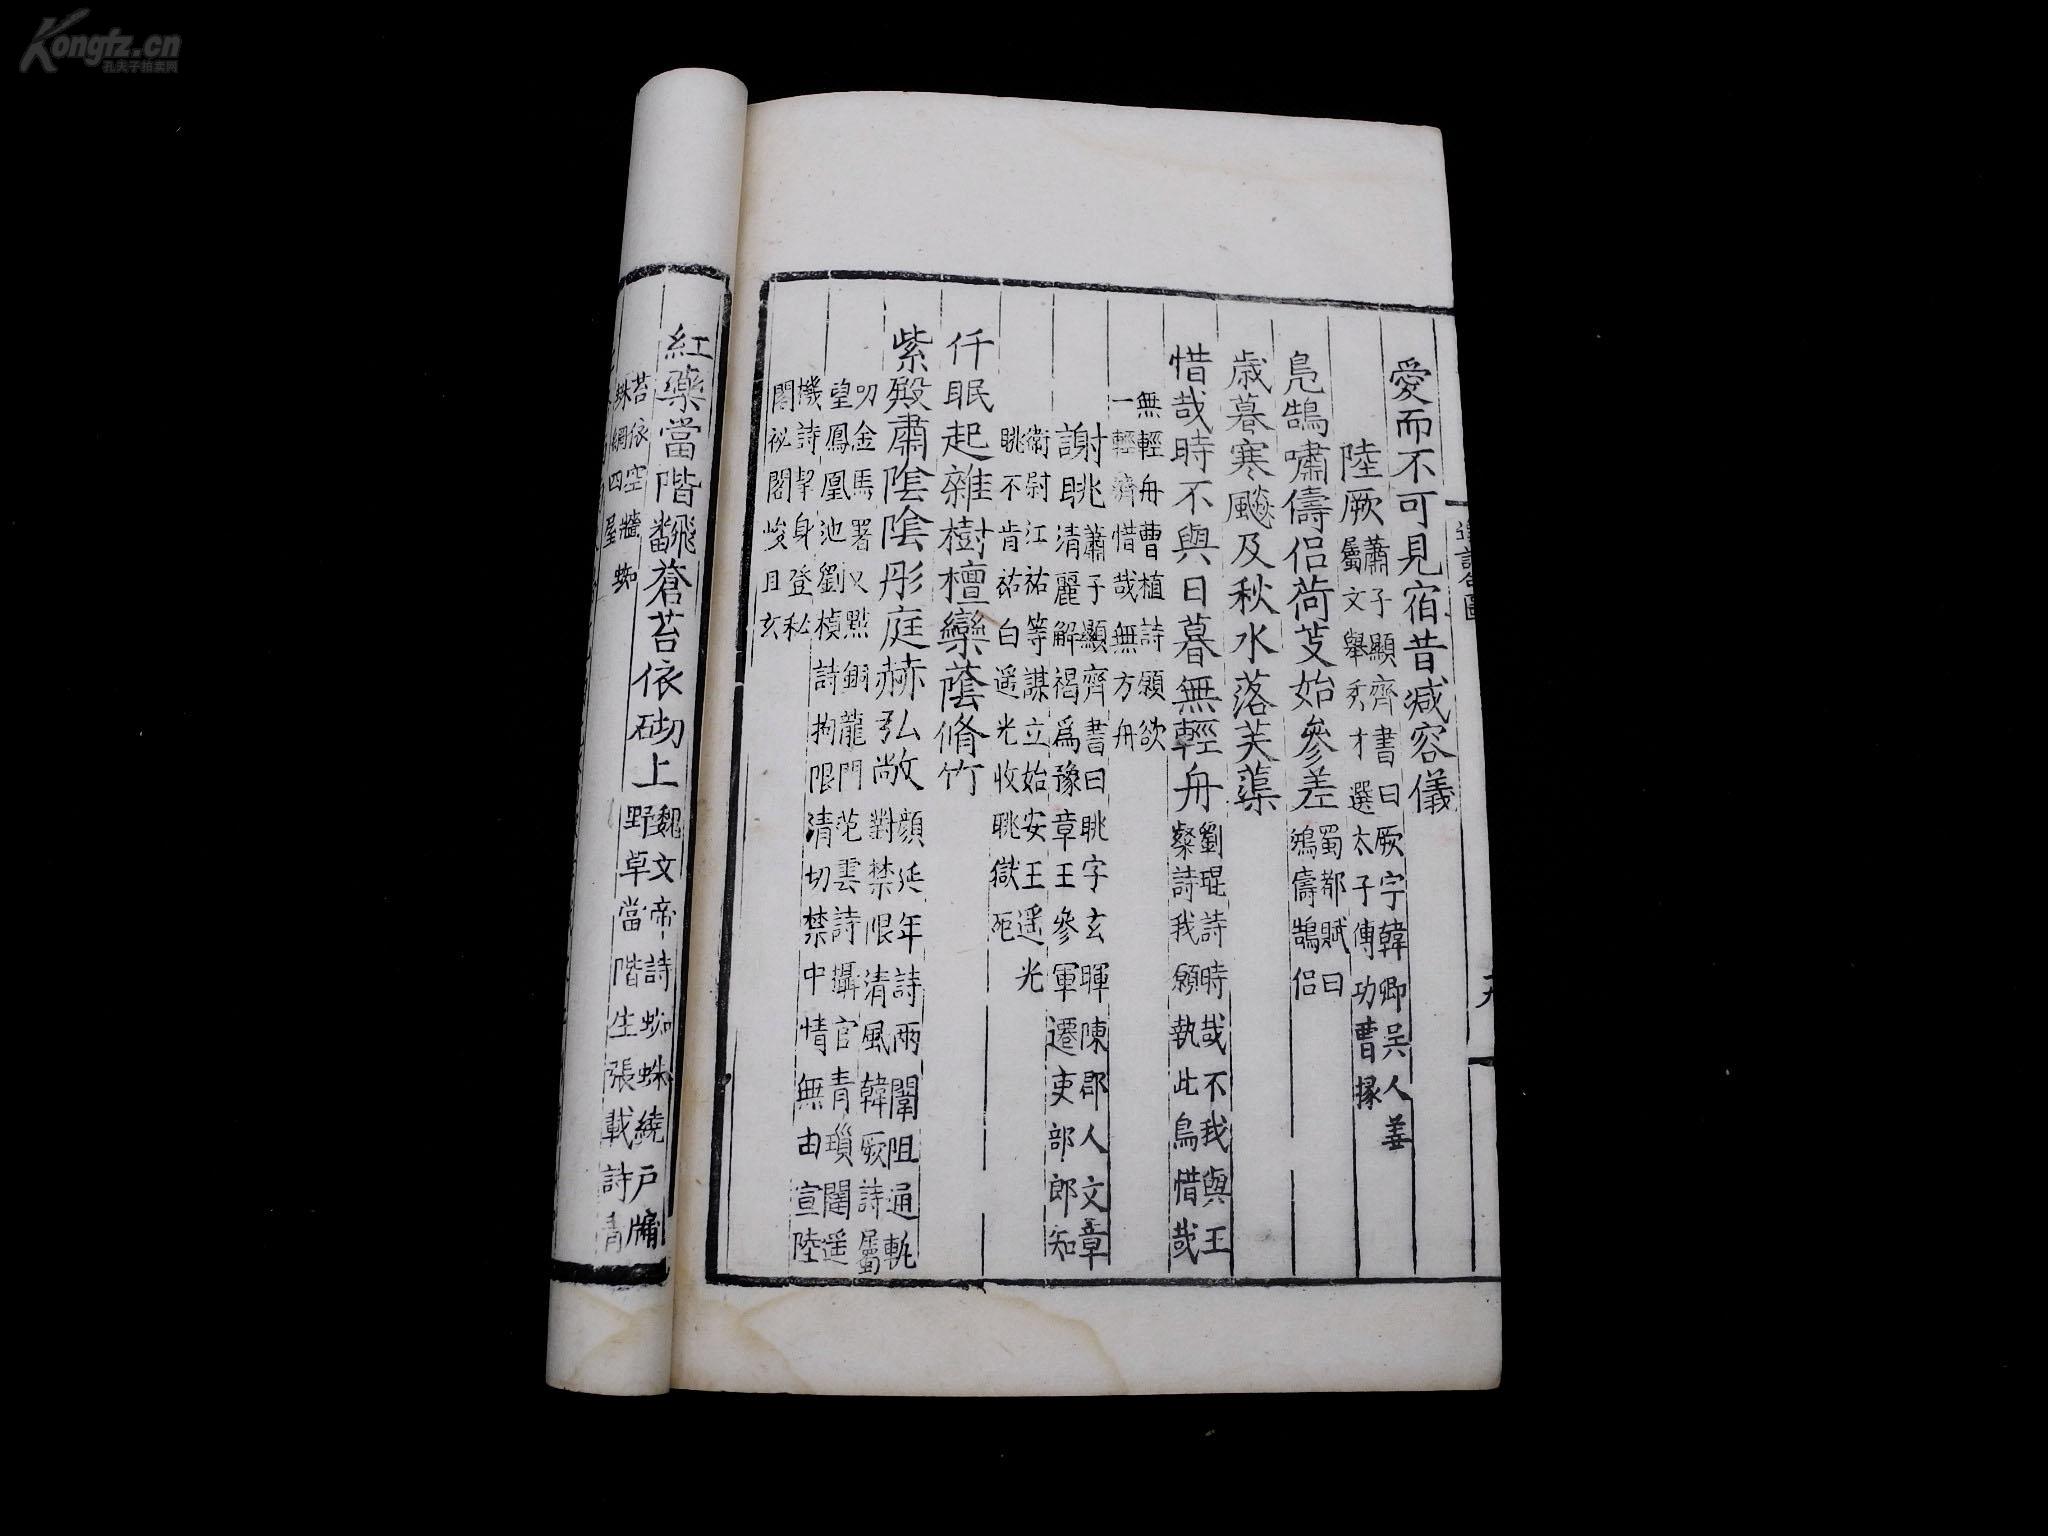 Kongfz.cn
孔夫子拍卖网
選詩句圖
愛而不可見宿昔減容儀
陸厥
蕭子顯齊書曰厥字韓卿吴人善
屬文舉秀才選太子傅功曹掾
鳧鵠嘯儔侣荷芰始參差
蜀都賦曰
鴻儔鵠侣
歳暮寒飈及秋水落芙蕖
惜哉時不與日暮無輕舟
劉琨詩時哉不我與王
粲詩我願執此鳥惜哉
無輕舟曹植詩願欲
一輕濟惜哉無方舟
謝眺
蕭子顯齊書曰眺字玄暉陳郡人文章
清麗解褐爲豫章王參軍遷吏部郎知
衛尉江祏等謀立始安王遥光
眺不肯祏白遥光收眺獄死
仟眠起雜樹檀欒蔭脩竹
紫殿肅陰陰彤庭赫弘敞
顔延年詩兩闈阻通軌
對禁限清風韓厥詩屬
叨金馬署又㸃銅龍門范雲詩攝官青瑣闥遥
望鳳凰池劉楨詩拘限清切禁中情無由宣陸
機詩挈身登私
閣祕閣峻且玄
紅藥當階飜蒼苔依砌上
魏文帝詩蜘蛛繞户牖
野草當階生張載詩青
苔依空牆蜘
蛛網四屋